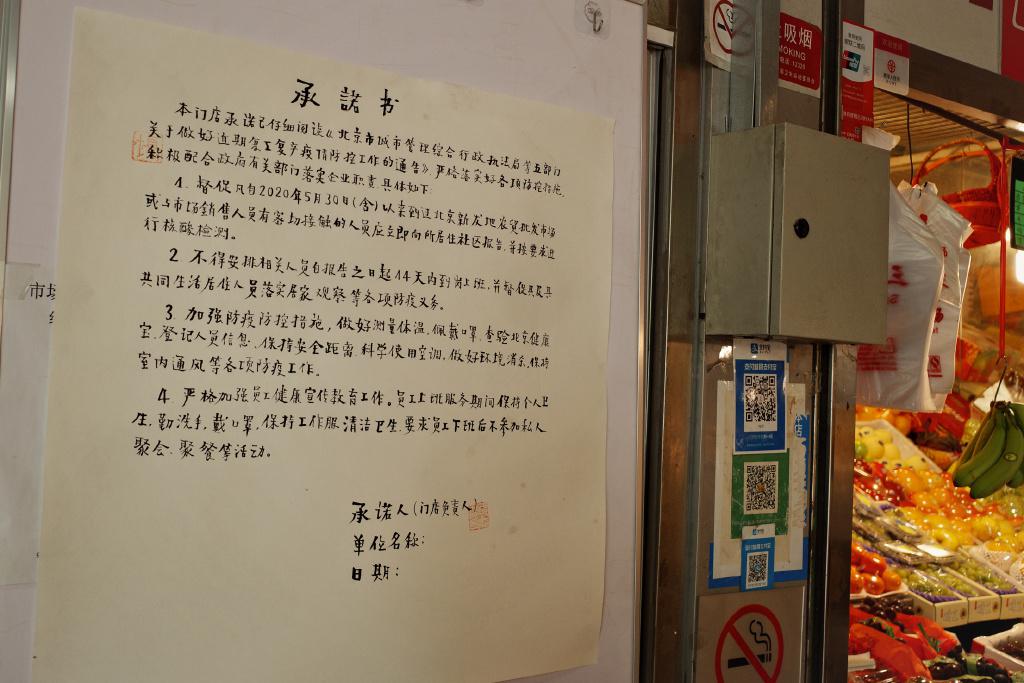 承诺书
本门店承诺已仔细阅读《北京市城市管理综合行政执法局等五部门
关于做好近期复工复产疫情防控工作的通告》，严格落实好各项防控措施，
积极配合政府有关部门落实企业职责具体如下:
1. 督促凡自2020年5月30日(含)以来到过北京新发地农贸批发市场
或与市场销售人员有密切接触的人员应立即向所居住社区报告,并按要求进
行核酸检测。
2. 不得安排相关人员自报告之日起14天内到岗上班,并督促其及其
共同生活居住人员落实居家观察等各项防疫义务。
3. 加强防疫防控措施,做好测量体温、佩戴口罩、查验北京健康
宝、登记人员信息、保持安全距离、科学使用空调、做好环境消杀、保持
室内通风等各项防疫工作。
4. 严格加强员工健康宣传教育工作。员工上班服务期间保持个人卫
生,勤洗手,戴口罩,保持工作服清洁卫生,要求员工下班后不参加私人
聚会、聚餐等活动。
承诺人(门店负责人)
单位名称:
日期:
市场
吸烟
MOKING
支付宝
本店